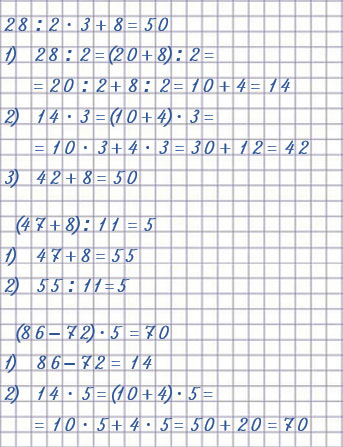 28 : 2 · 3 + 8 = 50
1) 28 : 2 = (20 + 8) : 2 =
= 20 : 2 + 8 : 2 = 10 + 4 = 14
2) 14 · 3 = (10 + 4) · 3 =
= 10 · 3 + 4 · 3 = 30 + 12 = 42
3) 42 + 8 = 50
(47 + 8) : 11 = 5
1) 47 + 8 = 55
2) 55 : 11 = 5
(86 − 72) · 5 = 70
1) 86 − 72 = 14
2) 14 · 5 = (10 + 4) · 5 =
= 10 · 5 + 4 · 5 = 50 + 20 = 70